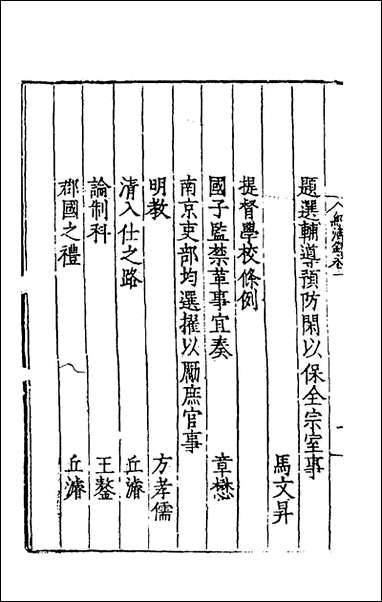 經濟錄卷一
題選輔導預防閑以保全宗室事
馬文昇
提督學校條例
國子監禁革事宜奏 章懋
南京吏部均選擢以勵庶官事
明教 方孝儒
清入仕之路 丘濬
論制科 王鏊
郡國之禮 丘濬